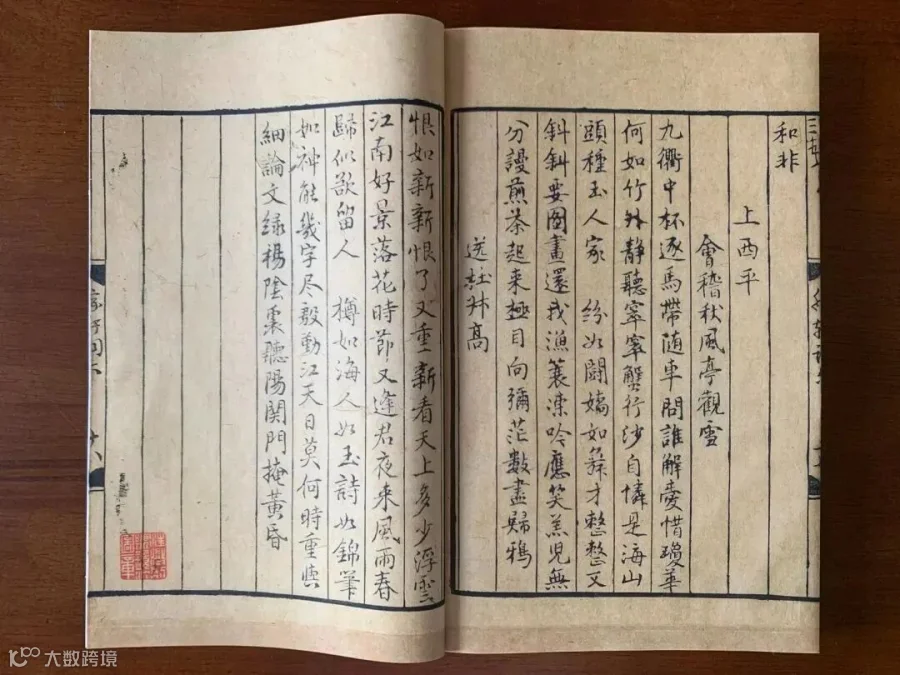 和非
上西平
會稽秋風亭觀雪
九衢中杯逐馬帶随車問誰解愛惜瓊華
何如竹外静聽窣窣蟹行沙自憐是海山
頭種玉人家 紛如鬭嬌如舞才整整又
斜斜要圖畫還我漁蓑凍吟應笑羔児無
分謾煎茶起来極目向彌茫數盡歸鴉
送杜叔高
恨如新新恨了又重新看天上多少浮雲
江南好景落花時節又逢君夜来風雨春
歸似欲留人 樽如海人如玉詩如錦筆
如神能幾字尽殷勤江天日莫何時重與
細論文緑楊陰裏聽陽関門掩黄昏
大数跨境